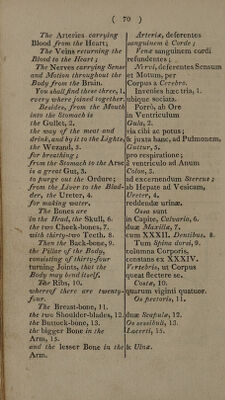 ( 70 )
The Arteries carrying
Blood from the Heart;
The Veins returning the
Blood to the Heart;
The Nerves carrying Sense
and Motion throughout the
Body from the Brain.
You shall find these three, 1.
every where joined together.
Besides, from the Mouth
into the Stomach is
the Gullet, 2.
the way of the meat and
drink, and by it to the Lights,
the Wezand, 3.
for breathing;
from the Stomach to the Arse
is a great Gut, 3.
to purge out the Ordure;
from the Liver to the Blad-
der, the Ureter, 4.
for making water.
The Bones are
in the Head, the Skull, 6.
the two Cheek-bones, 7.
with thirty-two Teeth. 8.
Then the Back-bone, 9.
the Pillar of the Body,
consisting of thirty-four
turning Joints, that the
Body may bend itself.
The Ribs, 10.
whereof there are twenty-
four.
The Breast-bone, 11.
the two Shoulder-blades, 12.
the Buttock-bone, 13.
the bigger Bone in the
Arm, 15.
and the lesser Bone in the
Arm.
Arteriæ, deferentes
sanguinem è Corde;
Venæ sanguinem cordi
refundentes;
Nervi, deferentes Sensum
et Motum, per
Corpus a Cerebro.
Invenies hæc tria, 1.
ubique sociata.
Porrò, ab Ore
in Ventriculum
Gula, 2.
via cibi ac potus;
& juxta hanc, ad Pulmonem,
Guttur, 5.
pro respiratione;
à ventriculo ad Anum
Colon, 3.
ad excernendum Stercus;
ab Hepate ad Vesicam,
Ureter, 4.
reddendæ urinæ.
Ossa sunt
in Capite, Calvaria, 6.
duæ Maxillæ, 7.
cum XXXII. Dentibus. 8.
Tum Spina dorsi, 9.
columna Corporis,
constans ex XXXIV.
Vertebris, ut Corpus
queat flectere se.
Costæ, 10.
quarum viginti quatuor.
Os pectoris, 11.
duæ Scapulæ, 12.
Os sessibuli, 13.
Lacerti, 15.
& Ulna.